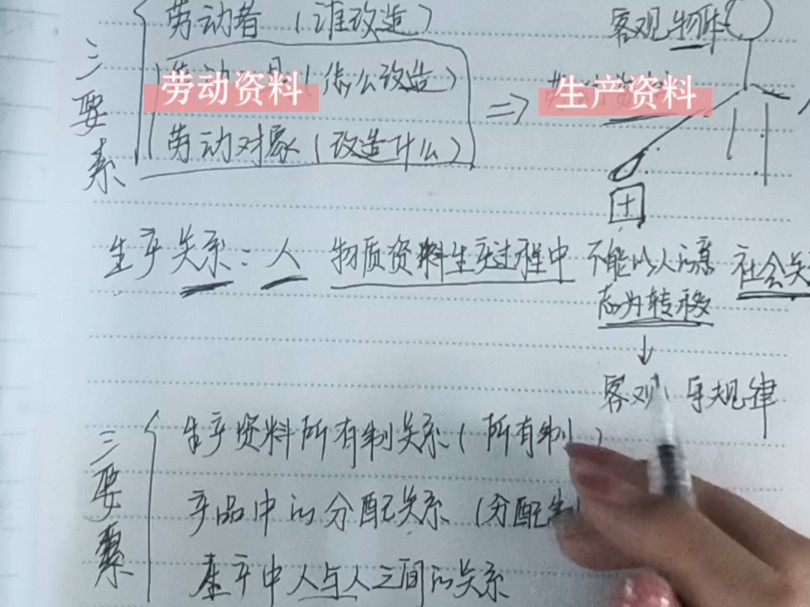 劳动者（谁改造）
客观物体
劳动资料
怎么改造）
生产资料
三要素
劳动对象（改造什么）
土
生产关系：人 物质资料生产过程中 不能以人的意
志为转移
社会关
客观
规律
三要素
生产资料所有制关系（所有制）
产品中的分配关系（分配制
生产中人与人之间的关系